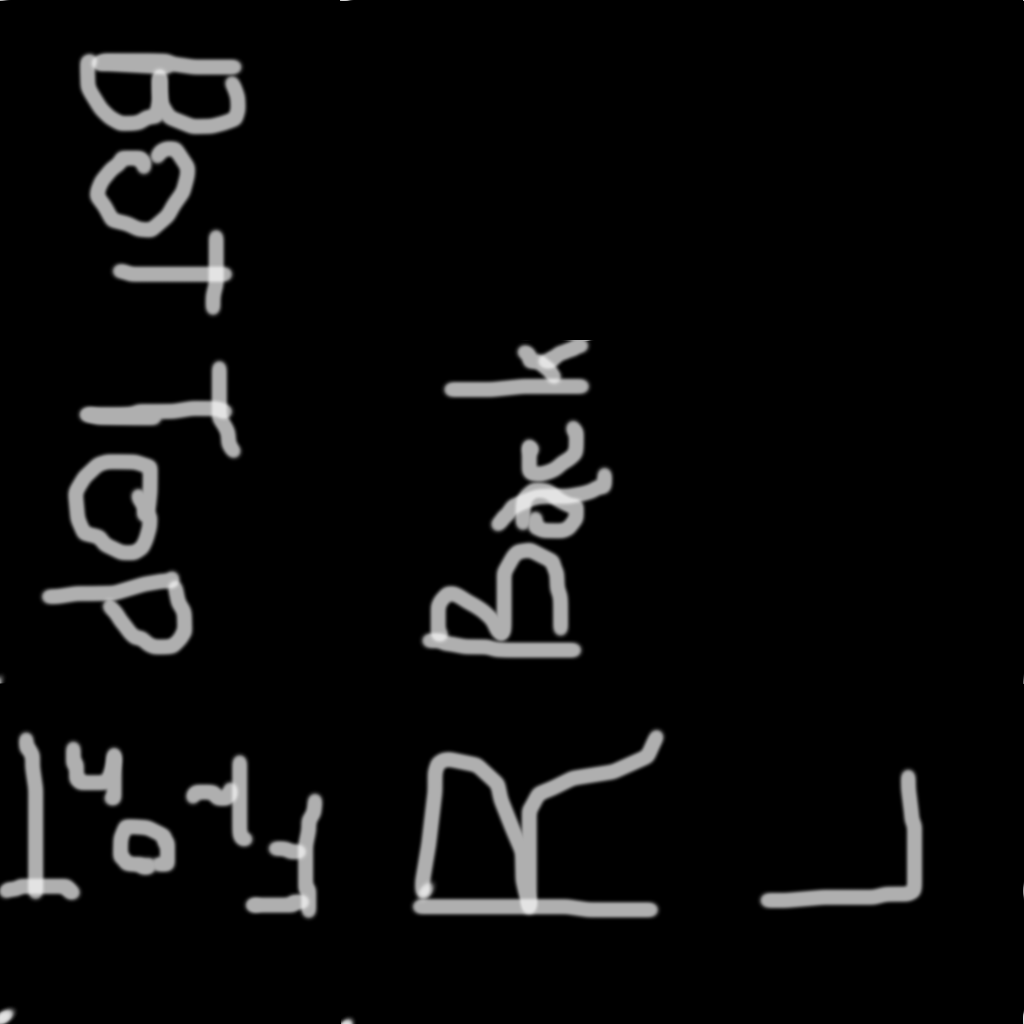 BOT
Top
Back
FronT
R
L